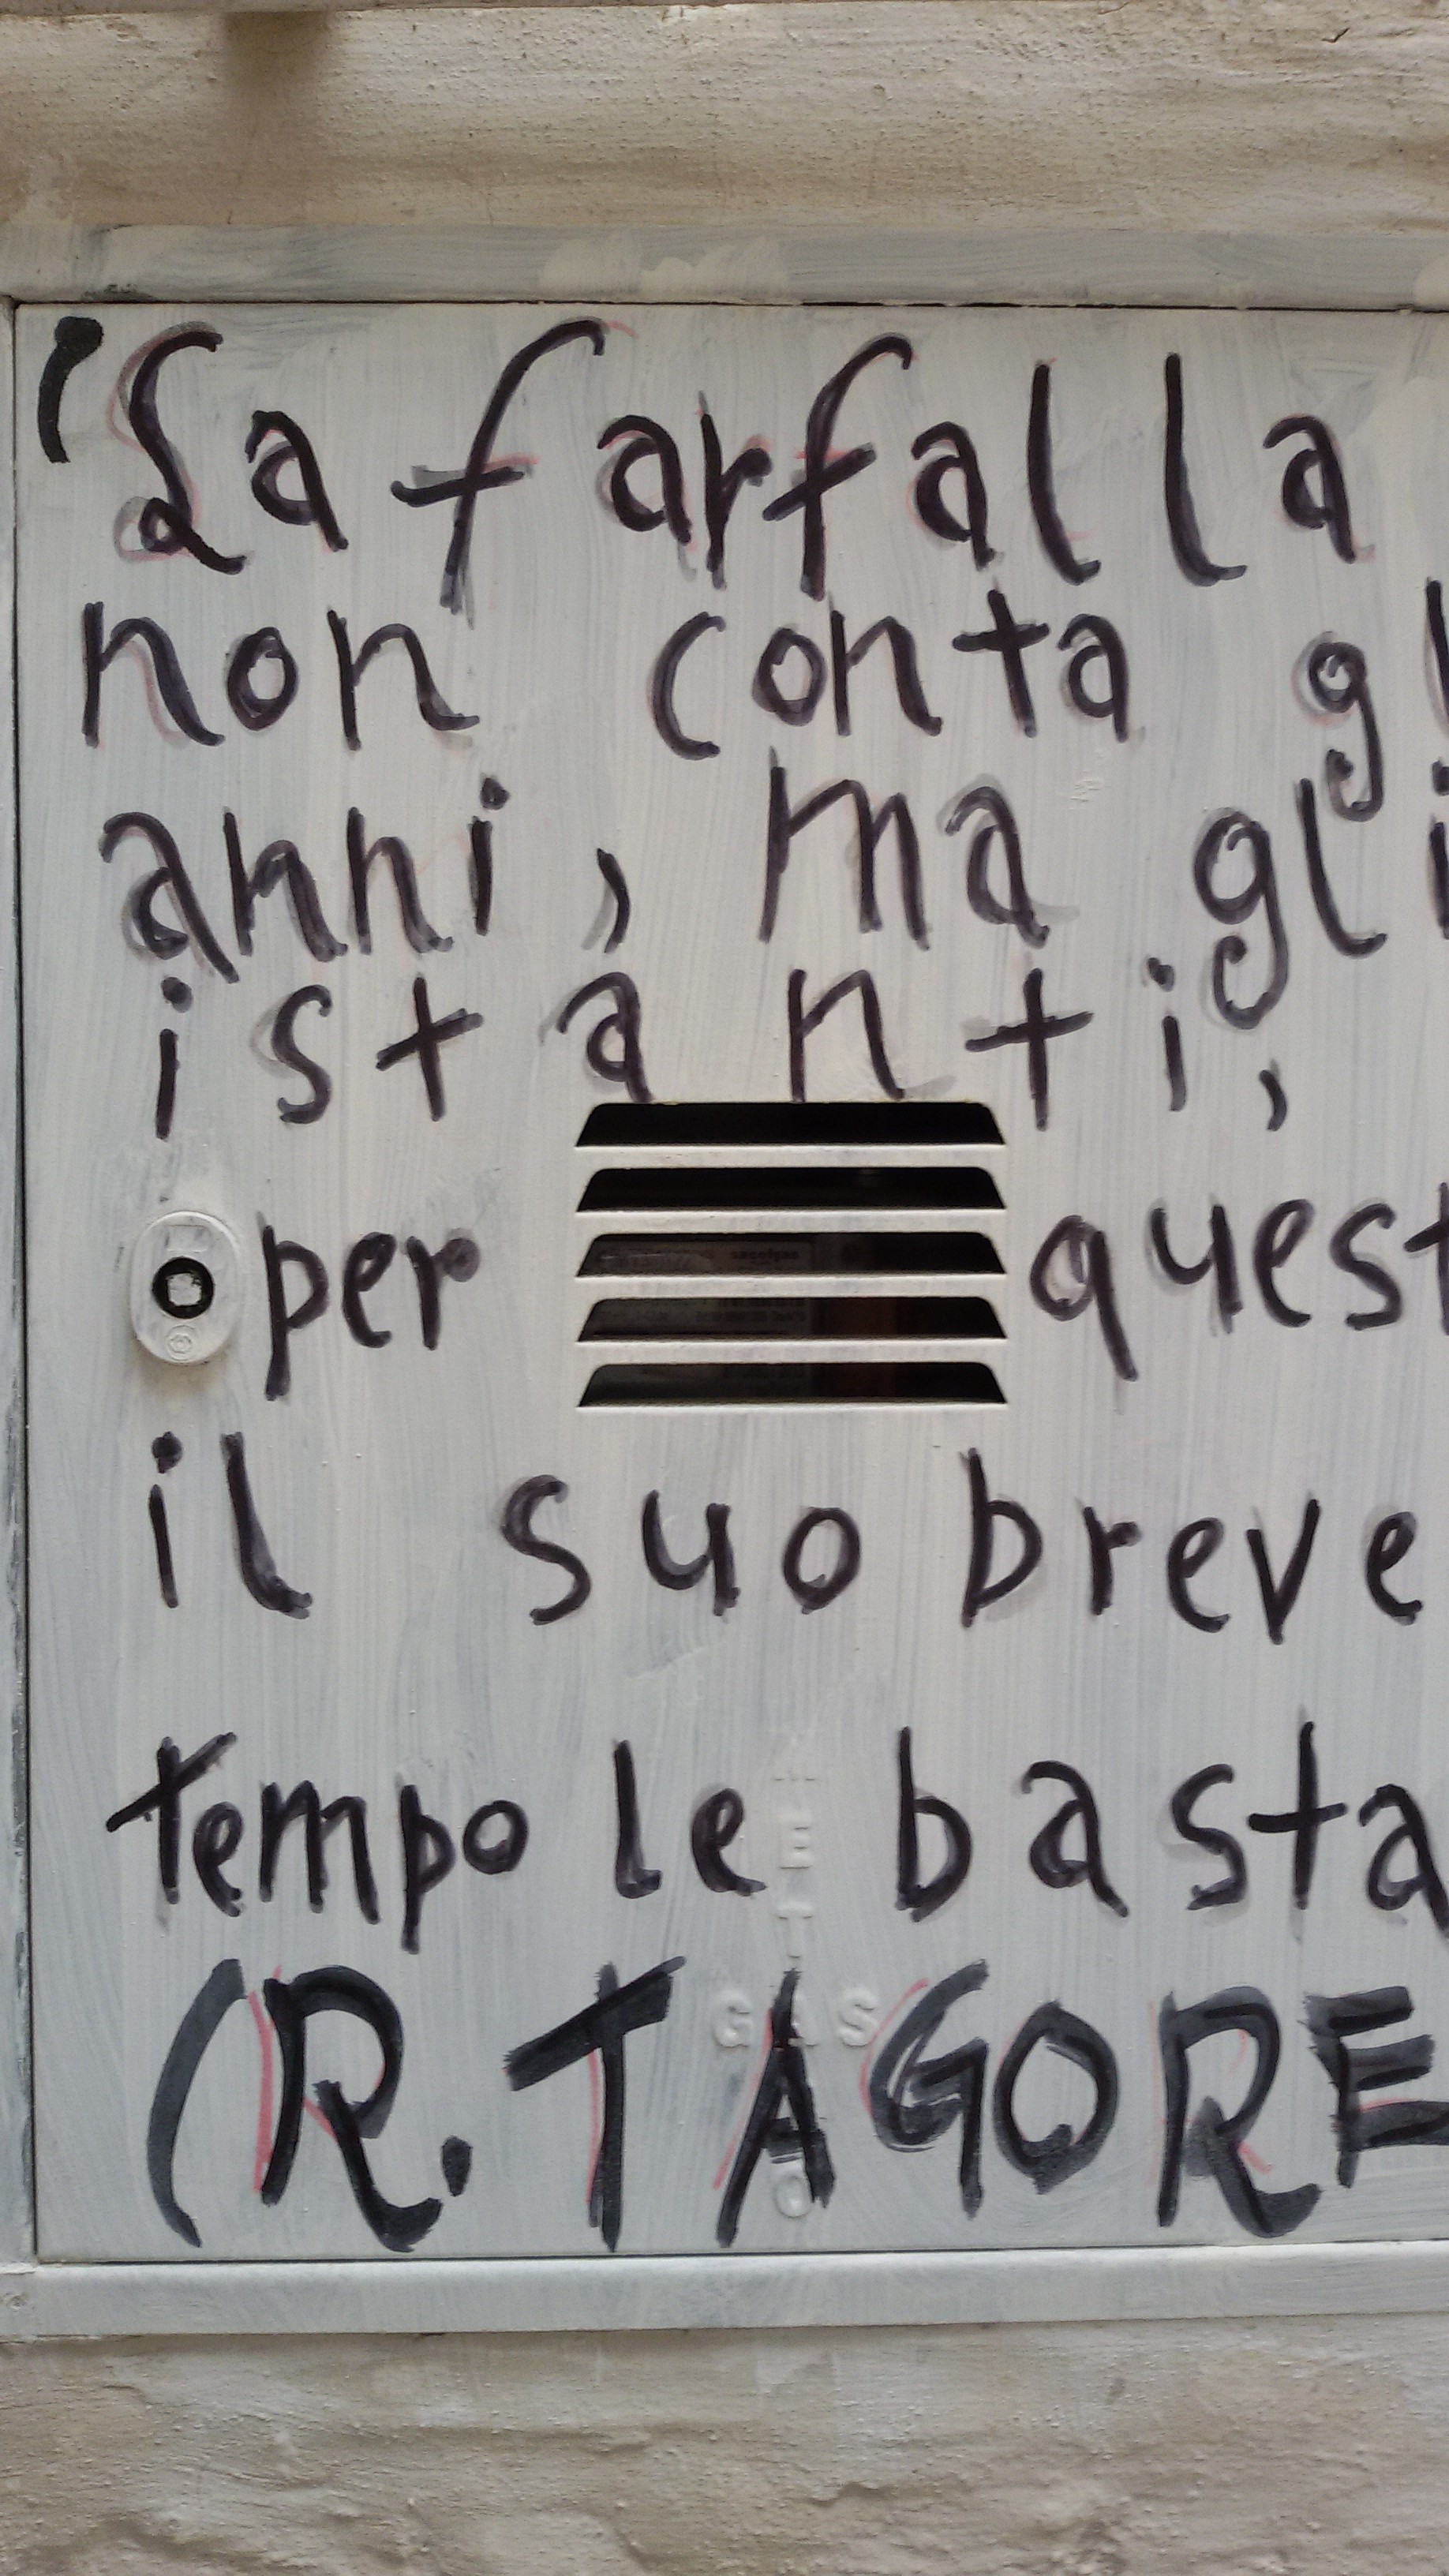 'La farfalla
non conta gl
anni, ma gli
istanti,
per quest
il suo breve
tempo le basta
(R. TAGORE
GAS